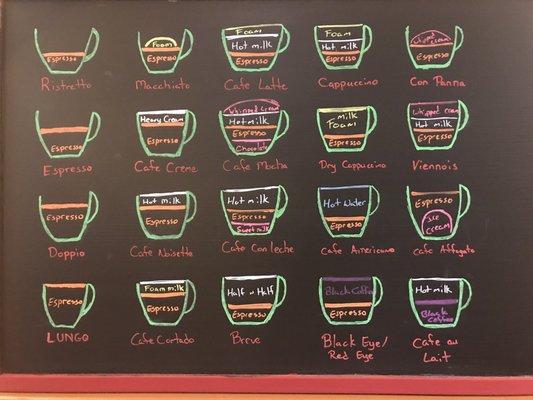 Espresso
Ristretto
Foam
Espresso
Macchiato
Foam
Hot milk
Espresso
Cafe Latte
Foam
Hot milk
Espresso
Cappuccino
Whipped cream
Espresso
Con Panna
Espresso
Espresso
Heavy Cream
Espresso
Cafe Creme
Whipped Cream
Hot milk
Espresso
Chocolate
Cafe Mocha
milk
Foam
Espresso
Dry Cappuccino
Whipped cream
Hot milk
Espresso
Viennois
Espresso
Doppio
Hot milk
Espresso
Cafe Noisette
Hot milk
Espresso
Sweet milk
Cafe Con leche
Hot Water
Espresso
Cafe Americano
Espresso
Ice
Cream
Cafe Affogato
Espresso
LUNGO
Foam milk
Espresso
Cafe Cortado
Half n Half
Espresso
Breve
Black Coffee
Espresso
Black Eye/
Red Eye
Hot milk
Black
Coffee
Cafe au
Lait